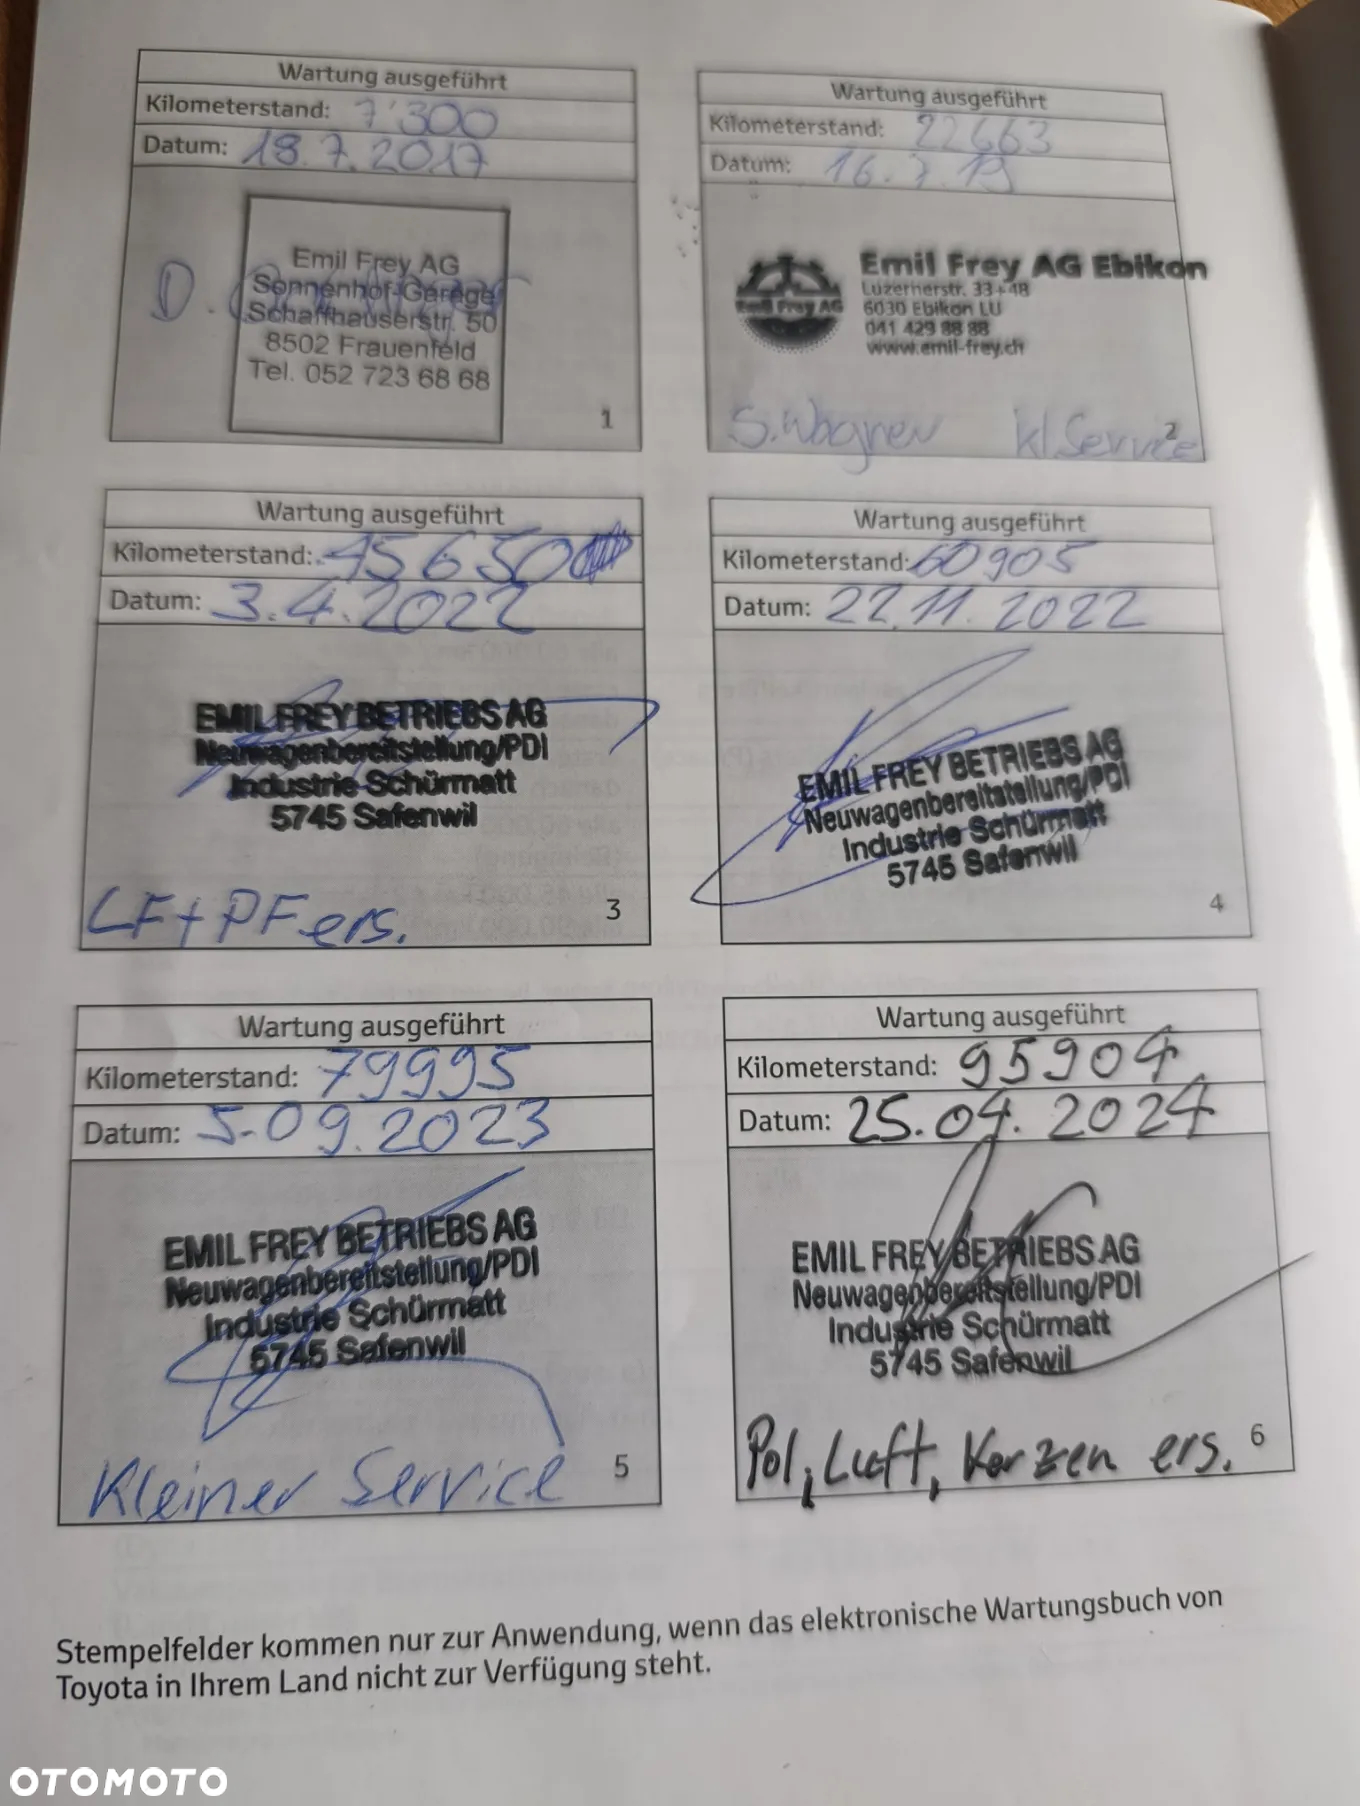 Wartung ausgeführt
Kilometerstand: 7'300
Datum: 18.7.2017
Emil Frey AG
Sonnenhof-Garage
Schaffhauserstr. 50
8502 Frauenfeld
Tel. 052 723 68 68
D.
1
Wartung ausgeführt
Kilometerstand: 22663
Datum: 16.7.19
Emil Frey AG
Emil Frey AG Ebikon
Luzernerstr. 33+48
6030 Ebikon LU
041 429 88 88
www.emil-frey.ch
S. Wagner kl. Service
2
Wartung ausgeführt
Kilometerstand: 45650
Datum: 3.4.2022
EMIL FREY BETRIEBS AG
Neuwagenbereitstellung/PDI
Industrie Schürmatt
5745 Safenwil
LF + PF ers.
3
Wartung ausgeführt
Kilometerstand: 60905
Datum: 22.11.2022
EMIL FREY BETRIEBS AG
Neuwagenbereitstellung/PDI
Industrie Schürmatt
5745 Safenwil
4
Wartung ausgeführt
Kilometerstand: 79995
Datum: 5.09.2023
EMIL FREY BETRIEBS AG
Neuwagenbereitstellung/PDI
Industrie Schürmatt
5745 Safenwil
Kleiner Service
5
Wartung ausgeführt
Kilometerstand: 95904
Datum: 25.04.2024
EMIL FREY BETRIEBS AG
Neuwagenbereitstellung/PDI
Industrie Schürmatt
5745 Safenwil
Pol, Luft, Kerzen ers.
6
Stempelfelder kommen nur zur Anwendung, wenn das elektronische Wartungsbuch von
Toyota in Ihrem Land nicht zur Verfügung steht.
OTOMOTO